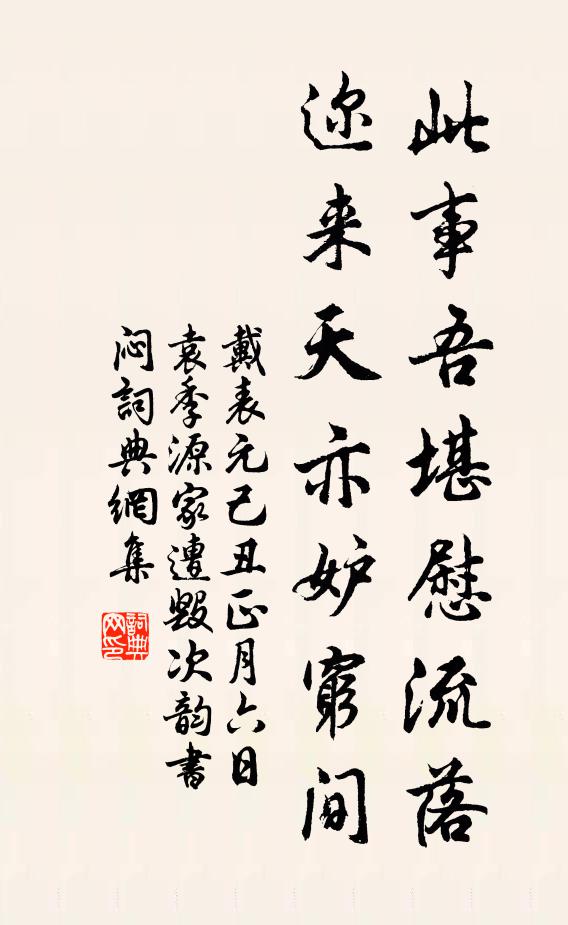 此事吾堪慰流落
迩来天亦妒穷间
戴表元己丑正月六日
袁季源家遭毁次韵书
闷詞典網集
詞典
网印